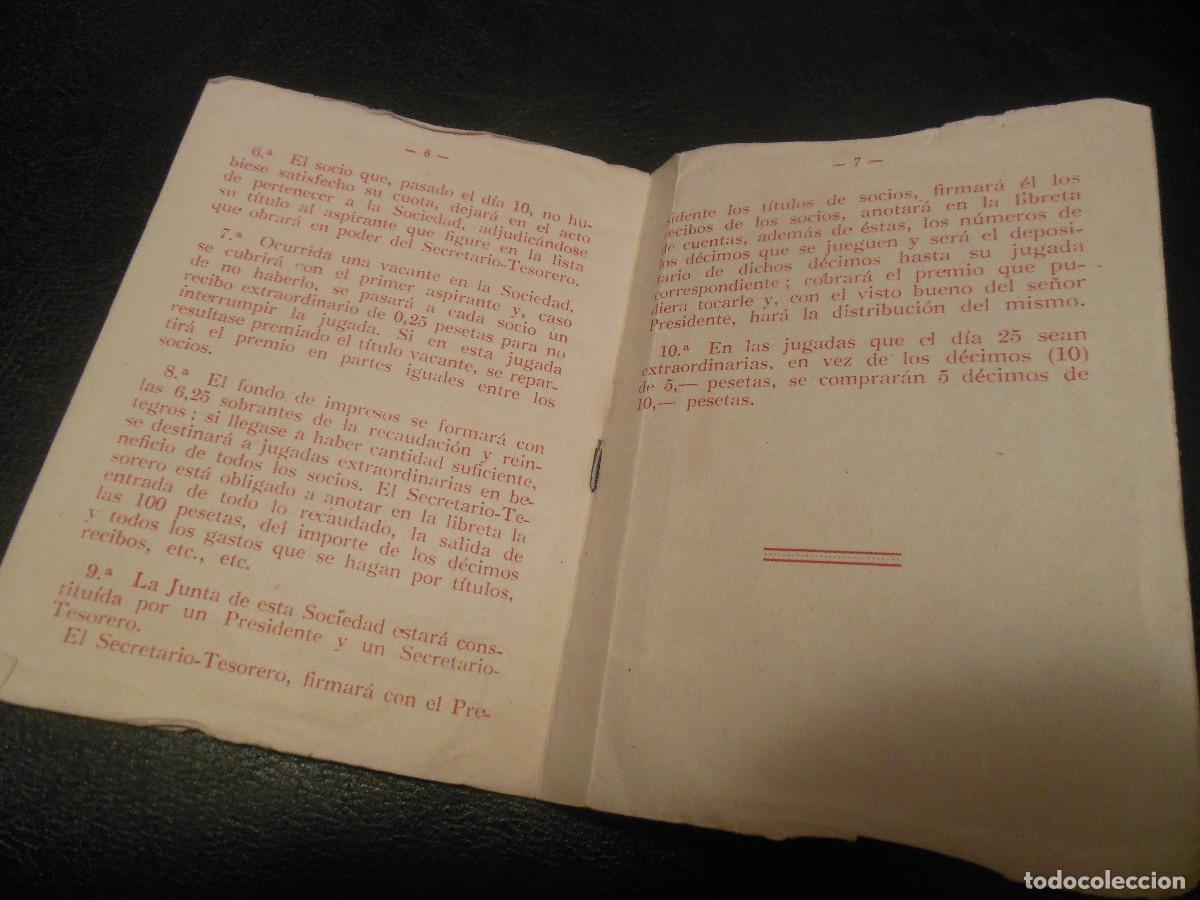 — 6 —
6.ª El socio que, pasado el día 10, no hu-
biese satisfecho su cuota, dejará en el acto
de pertenecer a la Sociedad, adjudicándose
su título al aspirante que figure en la lista
que obrará en poder del Secretario-Tesorero.
7.ª Ocurrida una vacante en la Sociedad,
se cubrirá con el primer aspirante y, caso
de no haberlo, se pasará a cada socio un
recibo extraordinario de 0,25 pesetas para no
interrumpir la jugada. Si en esta jugada
resultase premiado el título vacante, se repar-
tirá el premio en partes iguales entre los
socios.
8.ª El fondo de impresos se formará con
las 6,25 sobrantes de la recaudación y rein-
tegros; si llegase a haber cantidad suficiente,
se destinará a jugadas extraordinarias en be-
neficio de todos los socios. El Secretario-Te-
sorero está obligado a anotar en la libreta la
entrada de todo lo recaudado, la salida de
las 100 pesetas, del importe de los décimos
y todos los gastos que se hagan por títulos,
recibos, etc., etc.
9.ª La Junta de esta Sociedad estará cons-
tituída por un Presidente y un Secretario-
Tesorero.
El Secretario-Tesorero, firmará con el Pre-
— 7 —
sidente los títulos de socios, firmará él los
recibos de los socios, anotará en la libreta
de cuentas, además de éstas, los números de
los décimos que se jueguen y será el deposi-
tario de dichos décimos hasta su jugada
correspondiente; cobrará el premio que pu-
diera tocarle y, con el visto bueno del señor
Presidente, hará la distribución del mismo.
10.ª En las jugadas que el día 25 sean
extraordinarias, en vez de los décimos (10)
de 5,— pesetas, se comprarán 5 décimos de
10,— pesetas.
todocoleccion